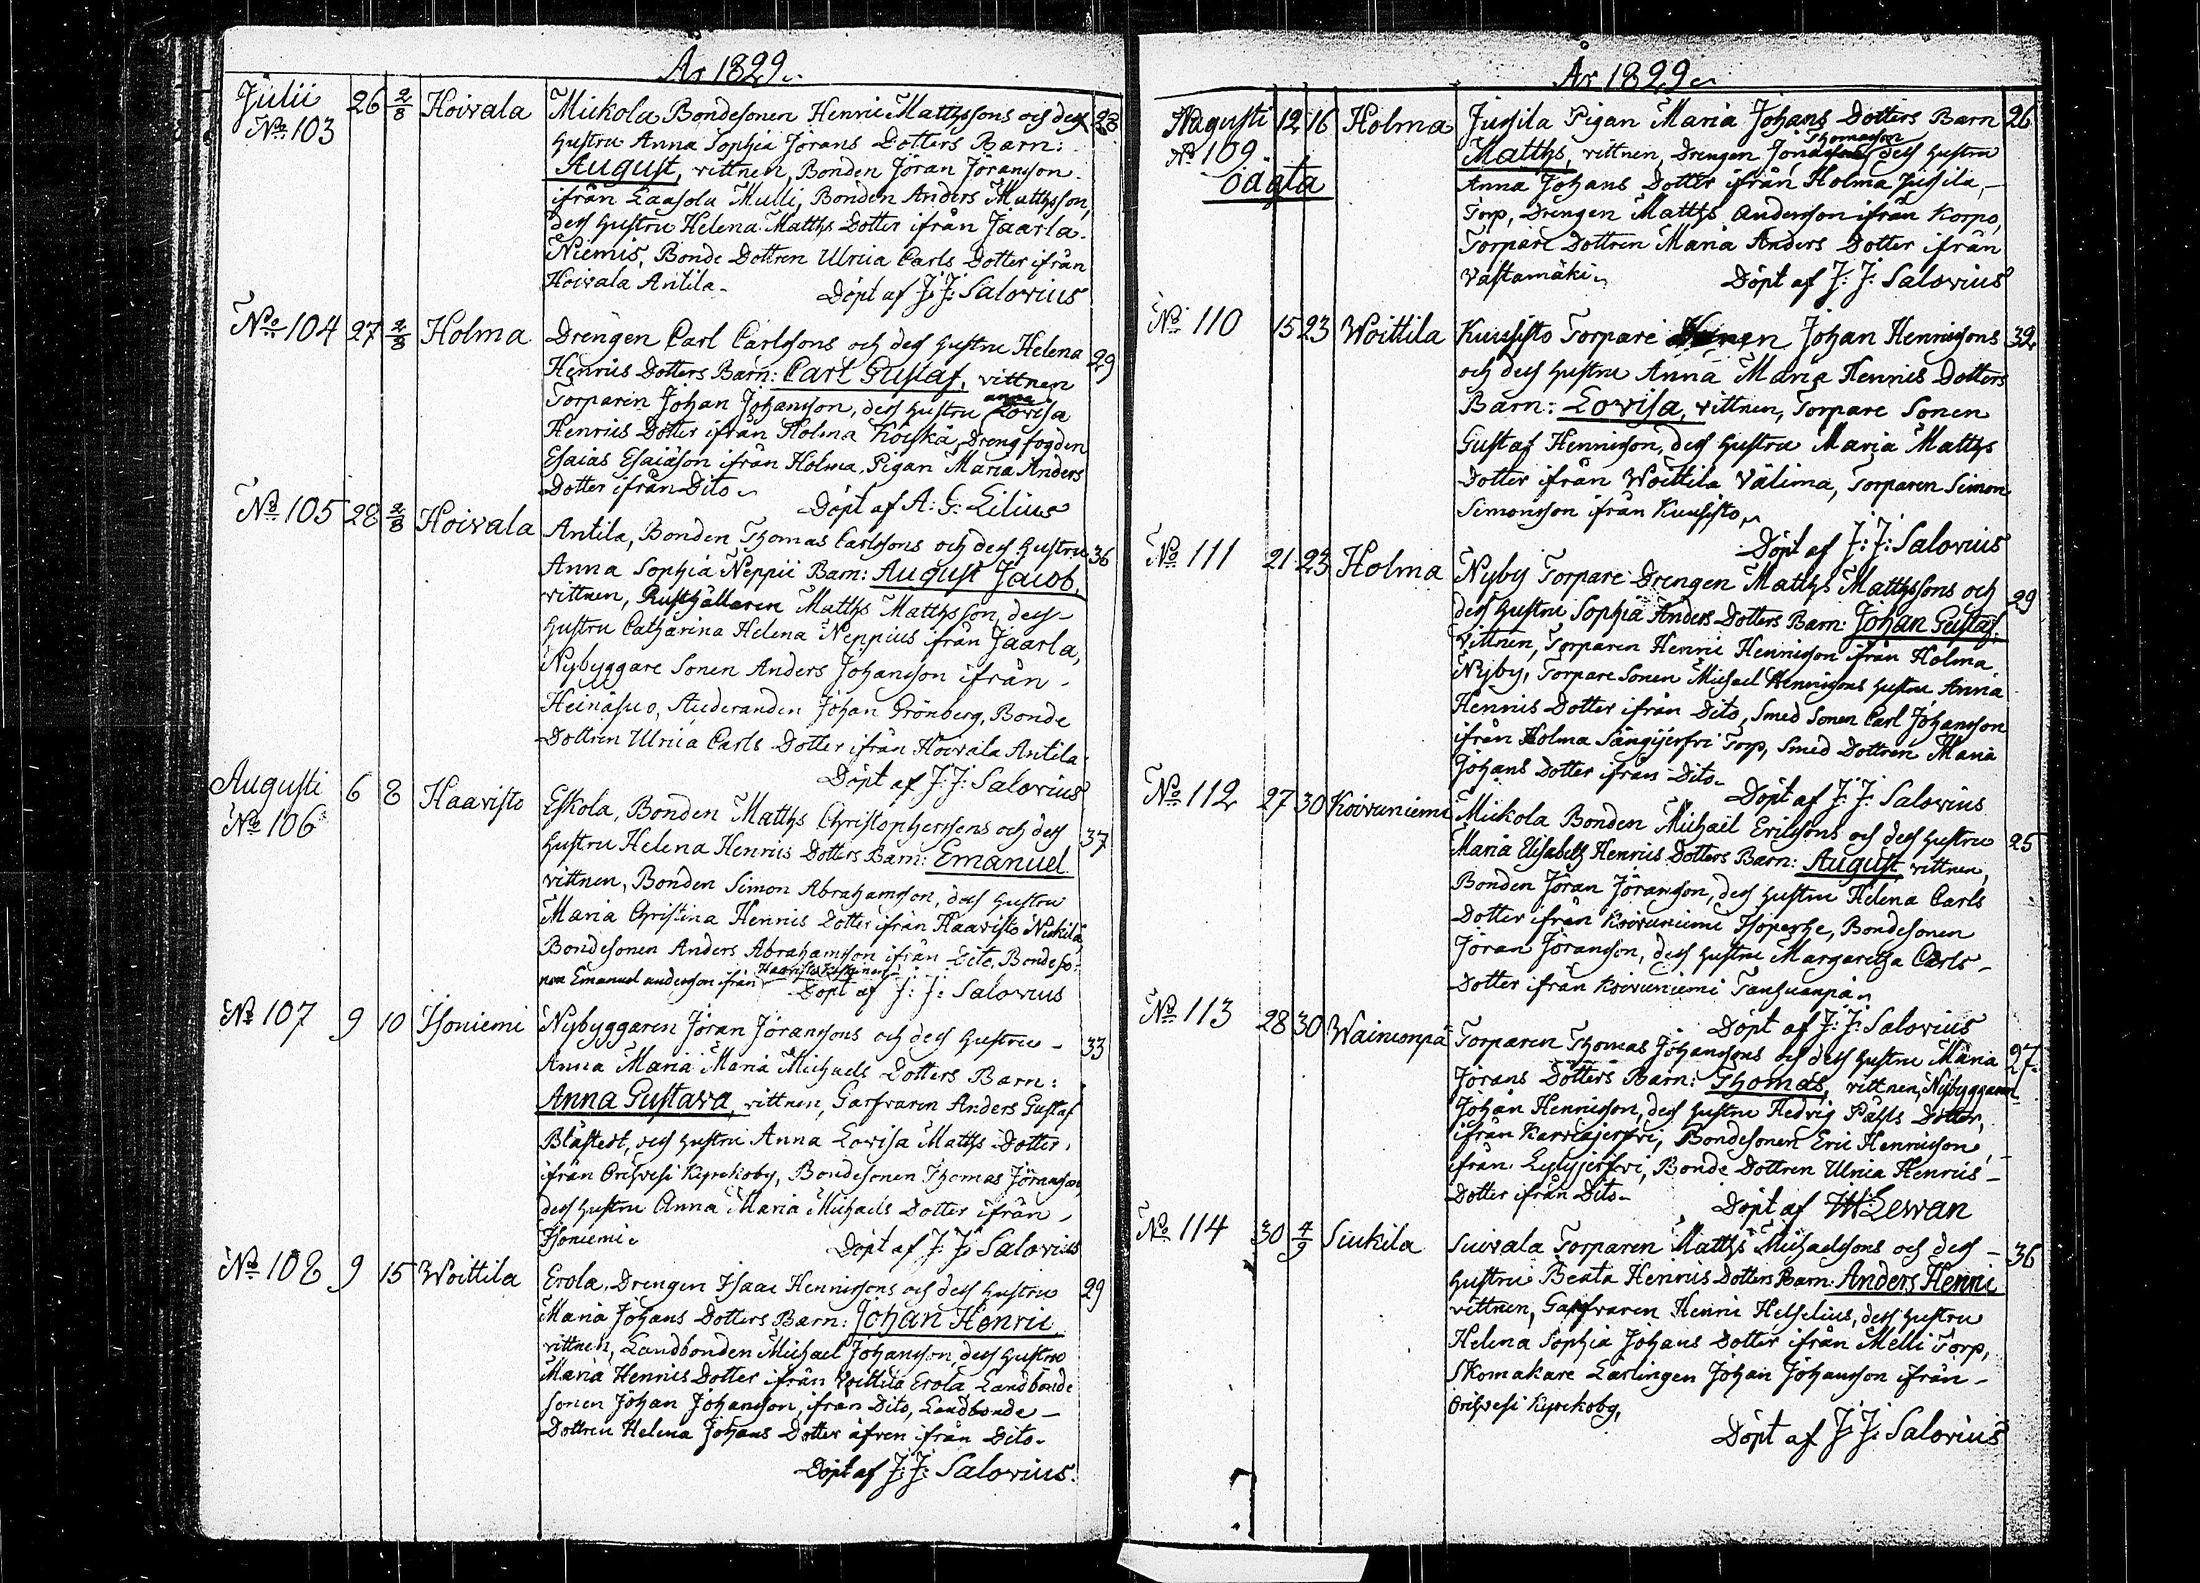 År 1829.
Julii 26 2/8 Hoivala Mickola Bondesonen Henric Matthssons och dess 28
No 103 hustru Anna Sophia Jörans Dotters Barn:
August, vittnen, Bonden Jöran Jöransson
ifrån Laasola Mulli, Bonden Anders Matthsson,
dess hustru Helena Matths Dotter ifrån Jaarla
Niemis, Bonde Dottren Ulrica Carls Dotter ifrån
Hoivala Antila. Döpt af J: J: Salovius
No 104 27 2/8 Holma Drengen Carl Carlssons och dess hustru Helena 29
Henrics Dotters Barn: Carl Gustaf, vittnen
Torparen Johan Johansson, dess hustru anna Lovisa
Henrics Dotter ifrån Holma Köiskä, Drengfogden
Esaias Esaiasson ifrån Holma, Pigan Maria Anders
Dotter ifrån Dito. Döpt af A: G: Lilius
No 105 28 2/8 Hoivala Antila, Bonden Thomas Carlssons och dess hustru 36
Anna Sophia Neppii Barn: August Jacob,
vittnen, Rusthållaren Matths Matthsson, dess
hustru Catharina Helena Neppius ifrån Jaarla,
Nybyggare Sonen Anders Johansson ifrån
Heinäsuo, Studeranden Johan Grönberg, Bonde
Dottren Ulrica Carls Dotter ifrån Hoivala Antila.
Döpt af J: J: Salovius
Augusti 6 8 Haavisto Eskola, Bonden Matths Christophersons och dess 37
No 106 hustru Helena Henrics Dotters Barn: Emanuel
vittnen, Bonden Simon Abrahamsson, dess hustru
Maria Christina Henrics Dotter ifrån Haavisto Nickilä
Bondesonen Anders Abrahamsson ifrån Dito, Bondeso-
nen Emanuel andersson ifrån Haavisto
Döpt af J: J: Salovius
No 107 9 10 Isoniemi Nybyggaren Jöran Jöranssons och dess hustru 33
Anna Maria Maria Michaels Dotters Barn:
Anna Gustava, vittnen, Garfvaren Anders Gustaf
Blåfield, dess hustru Anna Lovisa Matths Dotter,
ifrån Orihvesi Kyrckoby, Bondesonen Thomas Jöransson,
dess hustru Anna Maria Michaels Dotter ifrån
Isoniemi. Döpt af J: J: Salovius
No 108 9 15 Woittila Erola, Drengen Isaac Henricssons och dess hustru 29
Maria Johans Dotters Barn: Johan Henric
vittnen, Landbonden Michael Johansson, dess hustru
Maria Henrics Dotter ifrån Voittila Erola, Landbonde
sonen Johan Johansson, ifrån Dito, Landbonde
Dottren Helena Johans Dotter äfven ifrån Dito.
Döpt af J: J: Salovius.
År 1829
Augusti 12 16 Holma Jussila Pigan Maria Johans Dotters Barn 26
No 109 Matths, vittnen, Drengen Thomasson dess hustru
oägta Anna Johans Dotter ifrån Holma Jussila,
Torp, Drengen Matths Andersson ifrån Korpo,
Torpare Dottren Maria Anders Dotter ifrån
Vastamäki. Döpt af J: J: Salovius
No 110 15 23 Woittila Kuusisto Torpare Johan Henricssons 32
och dess hustru Anna Maria Henrics Dotters
Barn: Lovisa, vittnen, Torpare Sonen
Gustaf Henricsson, dess hustru Maria Matths
Dotter ifrån Woittila Välima, Torparen Simon
Simonsson ifrån Kuusisto.
Döpt af J: J: Salovius
No 111 21 23 Holma Nyby Torpare Drengen Matths Matthssons och 29
dess hustru Sophia Anders Dotters Barn: Johan Gustaf.
vittnen, Torparen Henric Henricsson ifrån Holma
Nyby, Torpare Sonen Michael Henricssons hustru Anna
Henrics Dotter ifrån Dito, Smed Sonen Carl Johansson
ifrån Holma Sängijerfvi Torp, Smed Dottren Maria
Johans Dotter ifrån Dito. Döpt af J: J: Salovius
No 112 27 30 Koivuniemi Mickola Bonden Michaël Ericssons och dess hustru 25
Maria Elisabeth Henrics Dotters Barn: August vittnen,
Bonden Jöran Jöransson, dess hustru Helena Carls
Dotter ifrån Koivuniemi Isoperhe, Bondesonen
Jöran Jöransson, dess hustru Margaretha Carls
Dotter ifrån Koivuniemi Tanhuanpä.
Döpt af J: J: Salovius
No 113 28 30 Wainionpä Torparen Thomas Johanssons och dess hustru Maria 27
Jörans Dotters Barn: Thomas, vittnen, Nybyggaren
Johan Henricsson, dess hustru Hedvig Påhls Dotter,
ifrån Karviajerfvi, Bondesonen Eric Henricsson,
ifrån Lylyjerfvi, Bonde Dottren Ulrica Henrics
Dotter ifrån Dito. Döpt af Lewan
No 114 30 4/9 Siukila Suivala Torparen Matths Michaelssons och dess 36
hustru Beata Henrics Dotters Barn: Anders Henric
vittnen, Garfvaren Henric Helselius, dess hustru
Helena Sophia Johans Dotter ifrån Melli Torp,
Skomakare Lärlingen Johan Johansson ifrån
Orihvesi Kyrckoby,
Döpt af J: J: Salovius